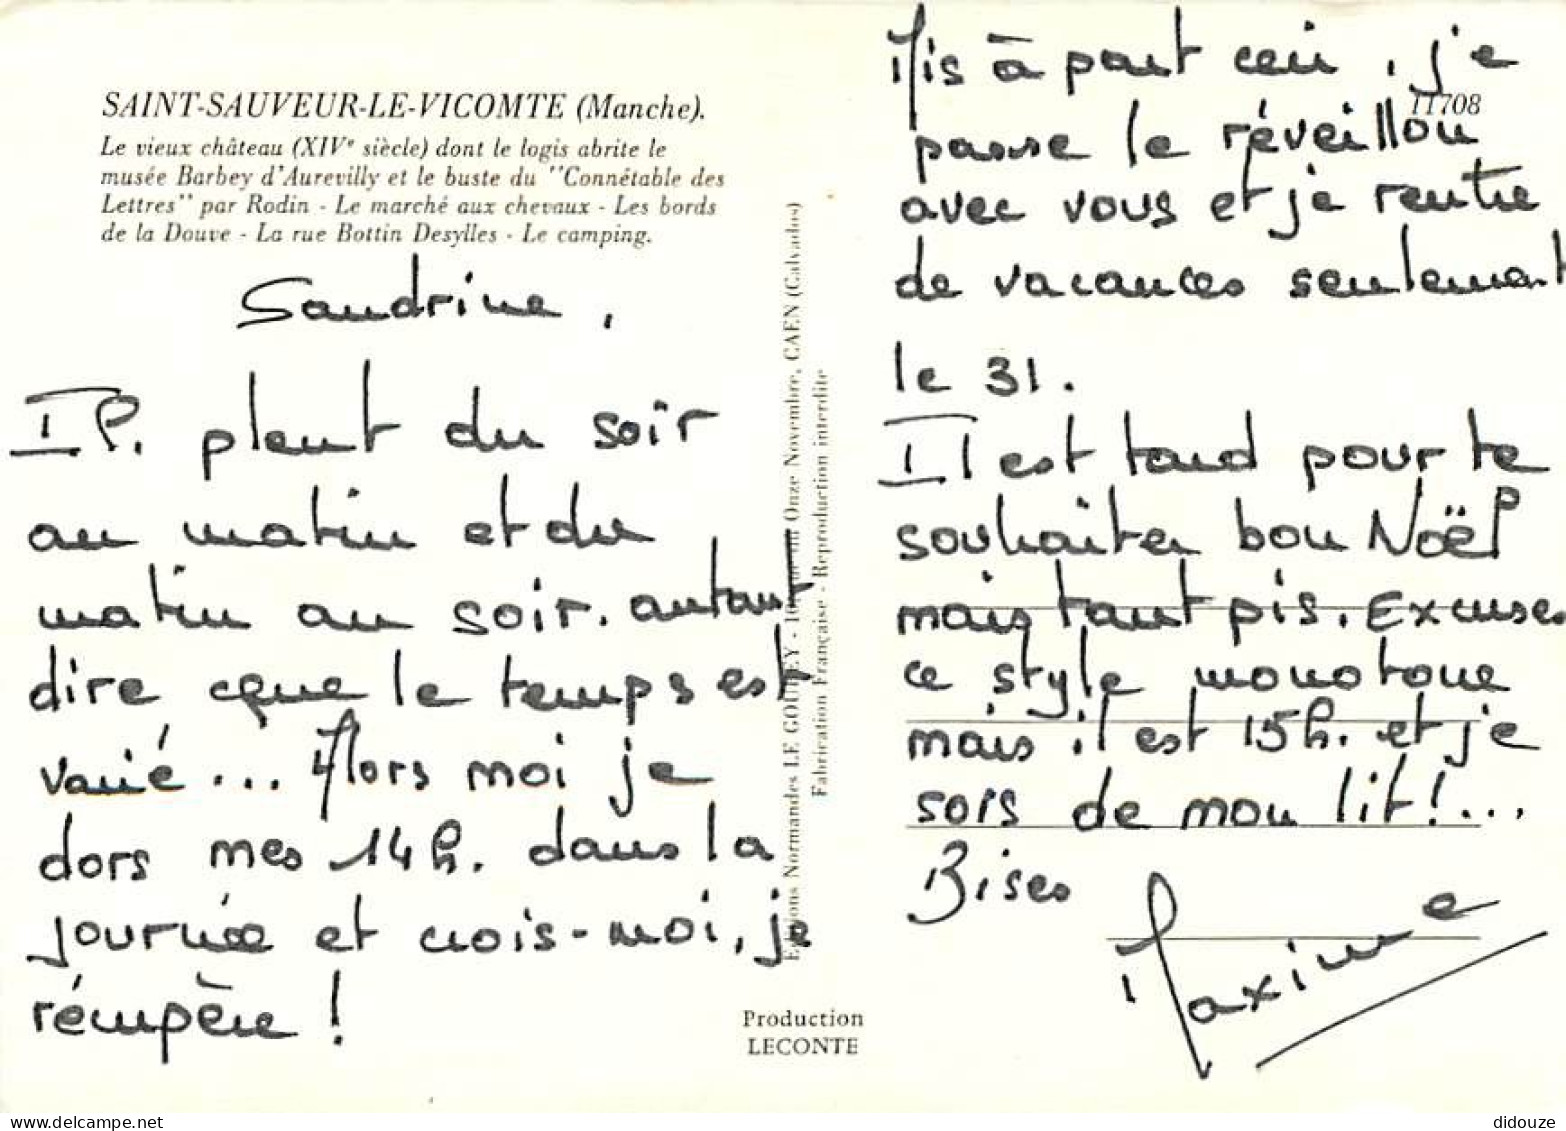 SAINT-SAUVEUR-LE-VICOMTE (Manche).
Le vieux château (XIVe siècle) dont le logis abrite le
musée Barbey d'Aurevilly et le buste du "Connétable des
Lettres" par Rodin - Le marché aux chevaux - Les bords
de la Douve - La rue Bottin Desylles - Le camping.
Sandrine,
Il pleut du soir
au matin et du
matin au soir. autant
dire que le temps est
varié... Alors moi je
dors mes 14h. dans la
journée et crois-moi, je
récupère !
11708
Mis à part ceci, je
passe le réveillon
avec vous et je rentre
de vacances seulement
le 31.
Il est tard pour te
souhaiter bon Noël
mais tant pis. Excuses
ce style monotone
mais il est 15h. et je
sors de mon lit !...
Bises
Maxime
Editions Normandes LE GOUBEY - Onze Novembre, CAEN (Calvados)
Fabrication Française - Reproduction interdite
Production
LECONTE
didouze